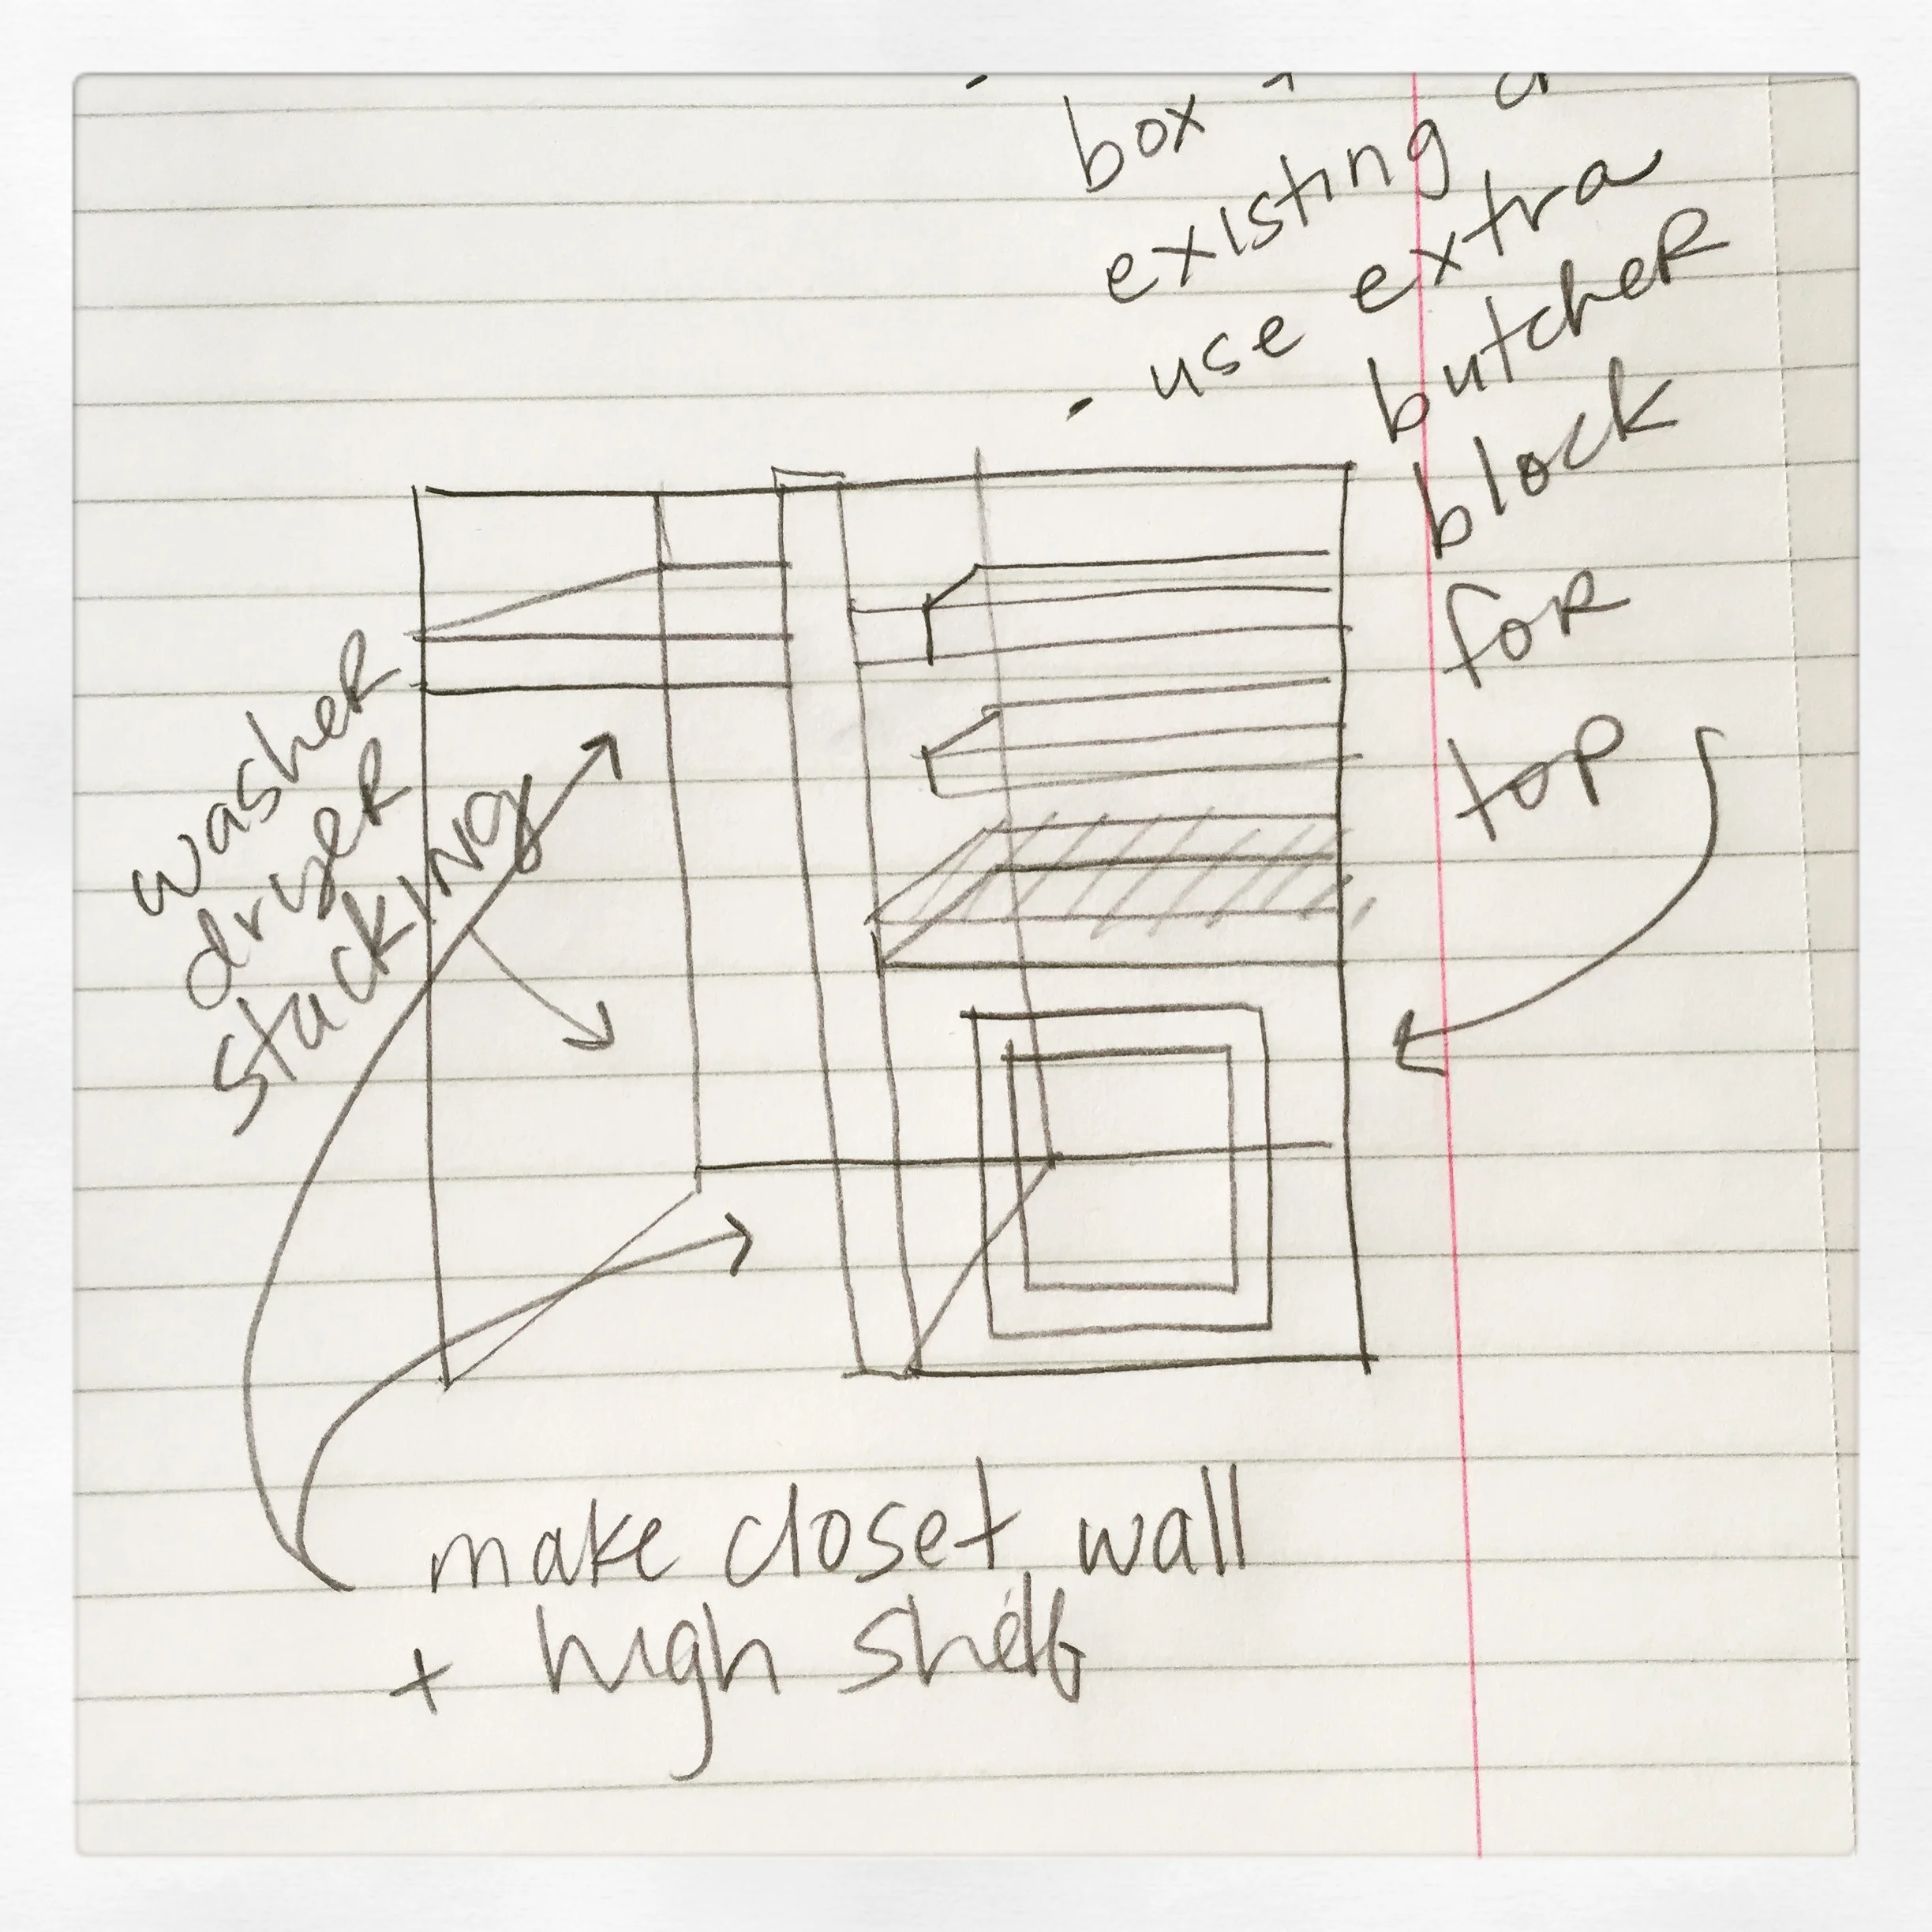 box
existing
- use extra
butcheR
block
foR
top
washeR
dryeR
stacking
make closet wall
+ high shelf